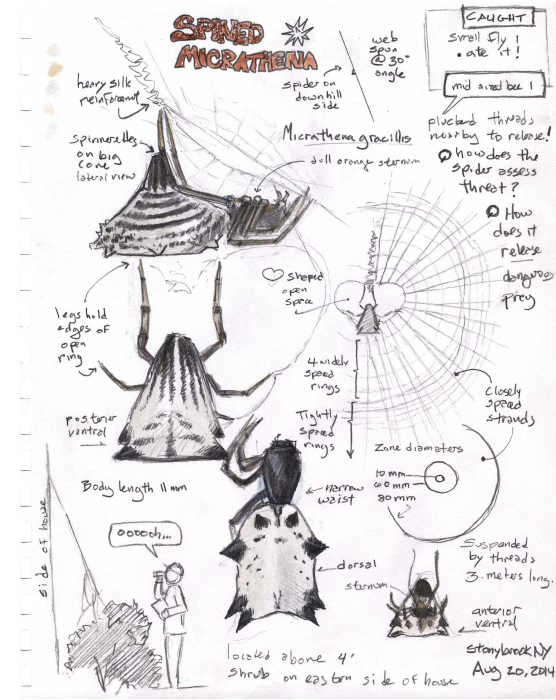 SPINED
MICRATHENA
web
spun
@ 30°
angle
spider on
downhill
side
CAUGHT
small fly
• ate it!
mid sized bee!
plucked threads
nearby to release!
how does the
spider assess
threat?
How
does it
release
dangerous
prey
heavy silk
reinforcement
spinnerettes
on big
cone
lateral view
Micrathena gracillis
dull orange sternum
♡ shaped
open
space
legs hold
edges of
open
ring
4 widely
spaced
rings
Tightly
spaced
rings
closely
spaced
strands
posterior
ventral
Zone diamaters
10 mm
60 mm
80 mm
Body length 11 mm
narrow
waist
side of house
oooooh...
dorsal
sternum
Suspended
by threads
3 meters long.
anterior
ventral
located above 4'
shrub on eastern side of house
stonybrook NY
Aug 20, 2014